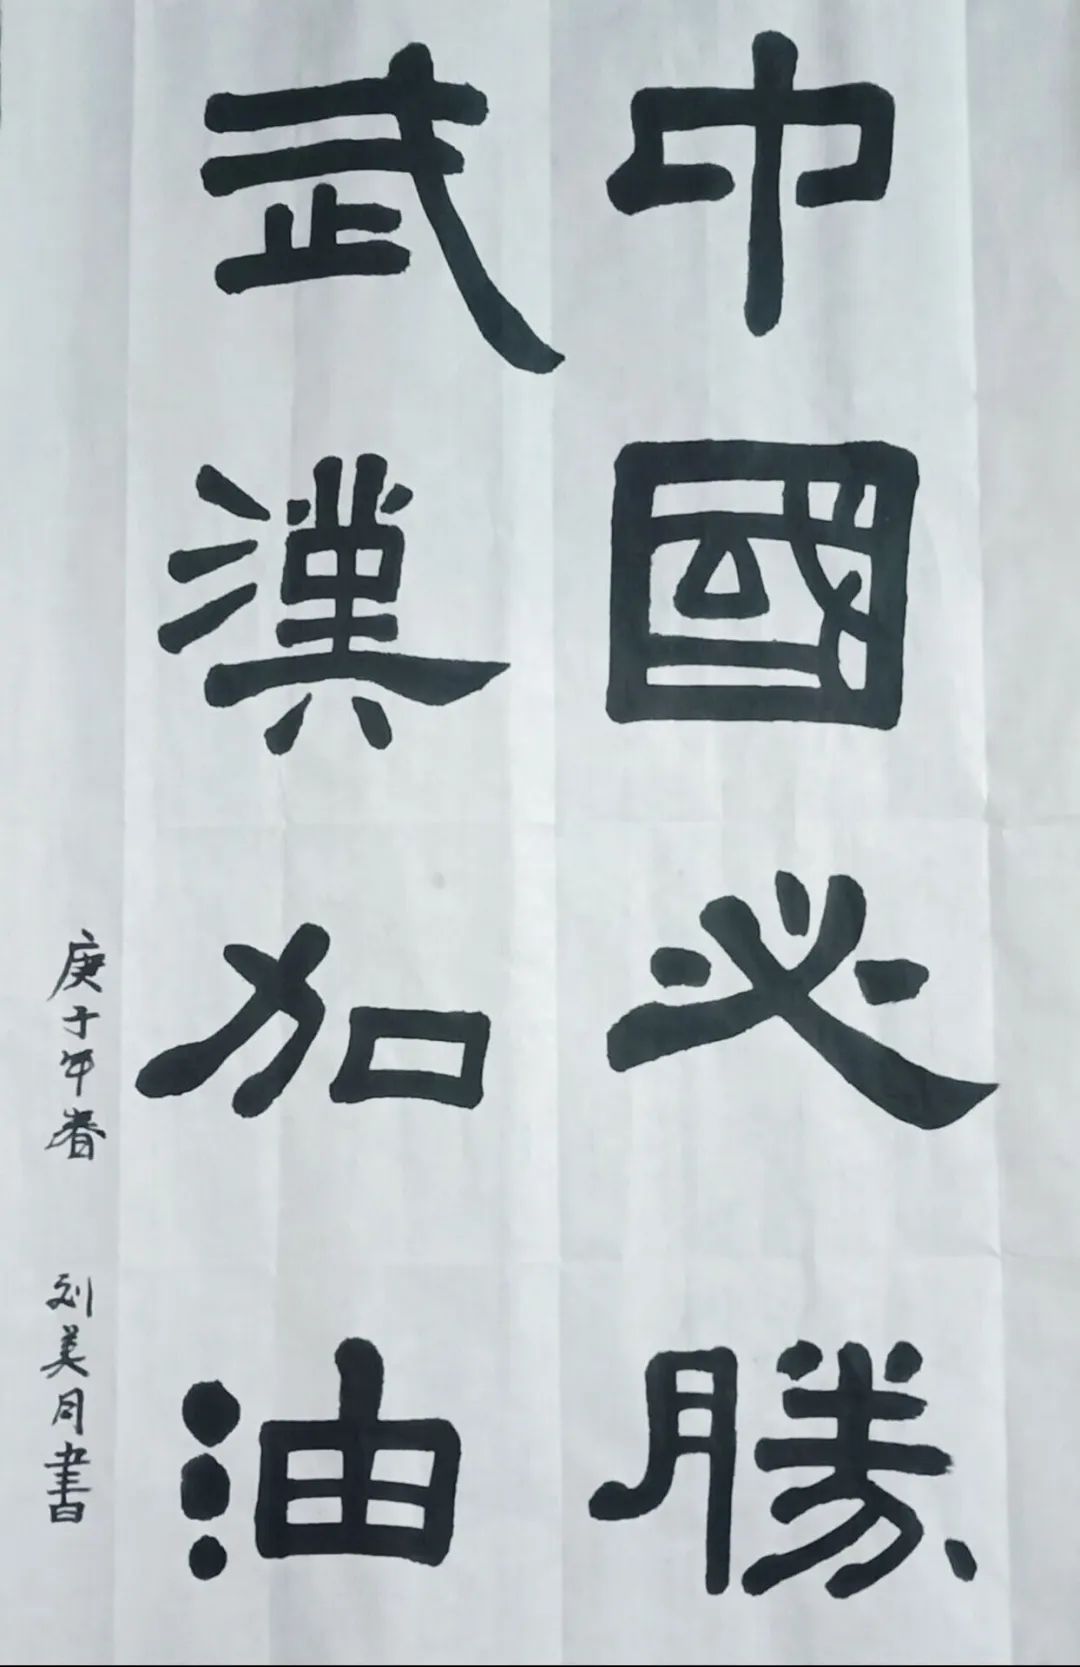 中國必勝
武漢加油
庚子年春
刘美同書